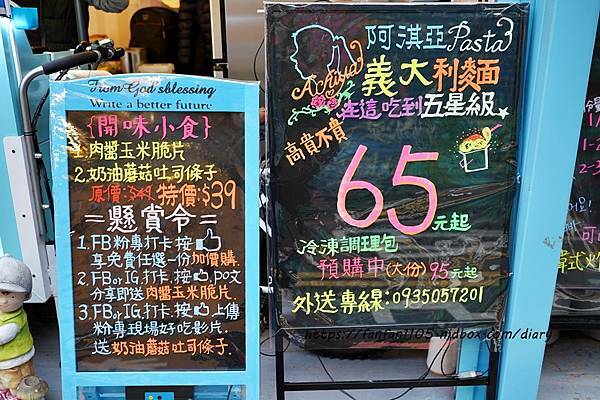 From God's blessing
Write a better future
{開味小食}
1.肉醬玉米脆片
2.奶油蘑菇吐司條子
原價:$49 特價:$39
=懸賞令=
1.FB粉專打卡.按
享免費任選一份加價購.
2.FB or IG.打卡.按 .PO文
分享即送肉醬玉米脆片.
3.FB or IG.打卡.按 上傳
粉專現場好吃影片.
送奶油蘑菇吐司條子.
阿淇亞Pasta
Achiya
義大利麵
在這吃到五星級
高貴不貴
65元起
冷凍調理包
預購中(大份)95元起
外送專線:0935057201
https://fanfan1105.njdbox.com/diary